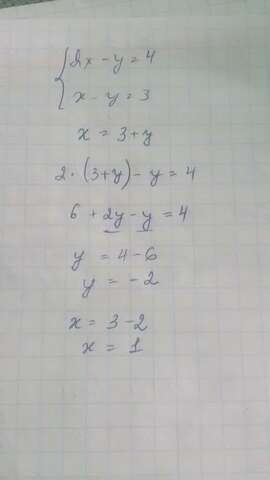 2x - y = 4
x - y = 3
x = 3 + y
2 · (3+y) - y = 4
6 + 2y - y = 4
y = 4 - 6
y = - 2
x = 3 - 2
x = 1